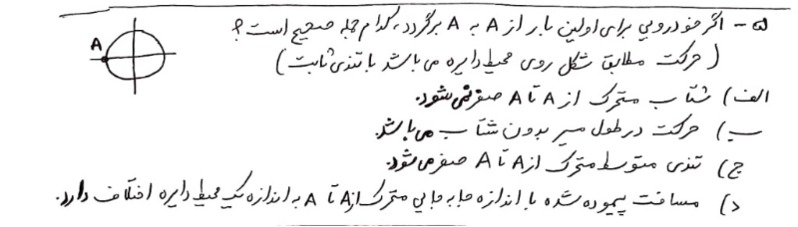 ۵- اگر خودرویی برای اولین بار از A به A برگردد، کدام جمله صحیح است؟
A
(حرکت مطابق شکل روی محیط دایره می باشد با تندی ثابت)
الف) شتاب متحرک از A تا A صفر نمی شود.
ب) حرکت در طول مسیر بدون شتاب می باشد.
ج) تندی متوسط متحرک از A تا A صفر می شود.
د) مسافت پیموده شده با اندازه جابه جایی متحرک از A تا A به اندازه یک محیط دایره اختلاف دارد.